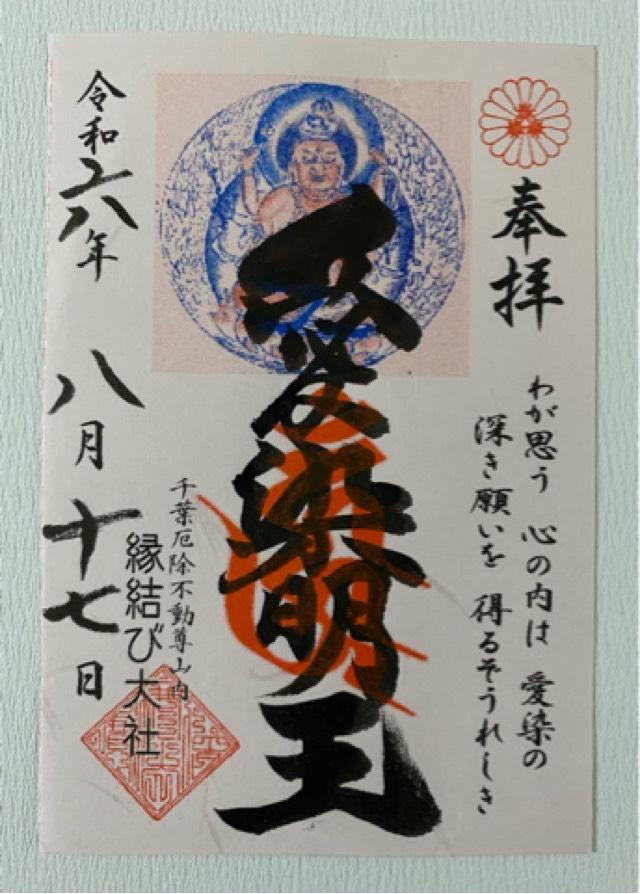 奉拝
わが思う 心の内は 愛染の
深き願いを 得るぞうれしき
愛染明王
千葉厄除不動尊山内
縁結び大社
令和六年 八月 十七日